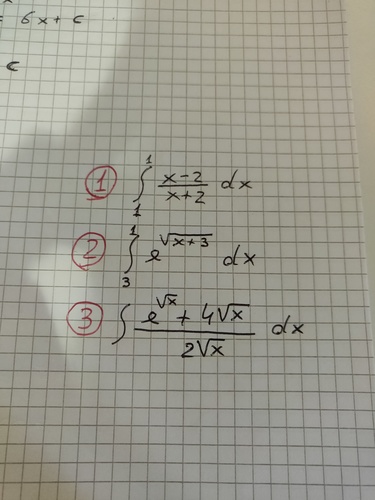 = 6x + c
c
① ∫₁¹ (x-2)/(x+2) dx
② ∫₃¹ e^√(x+3) dx
③ ∫ (e^√x + 4√x)/(2√x) dx